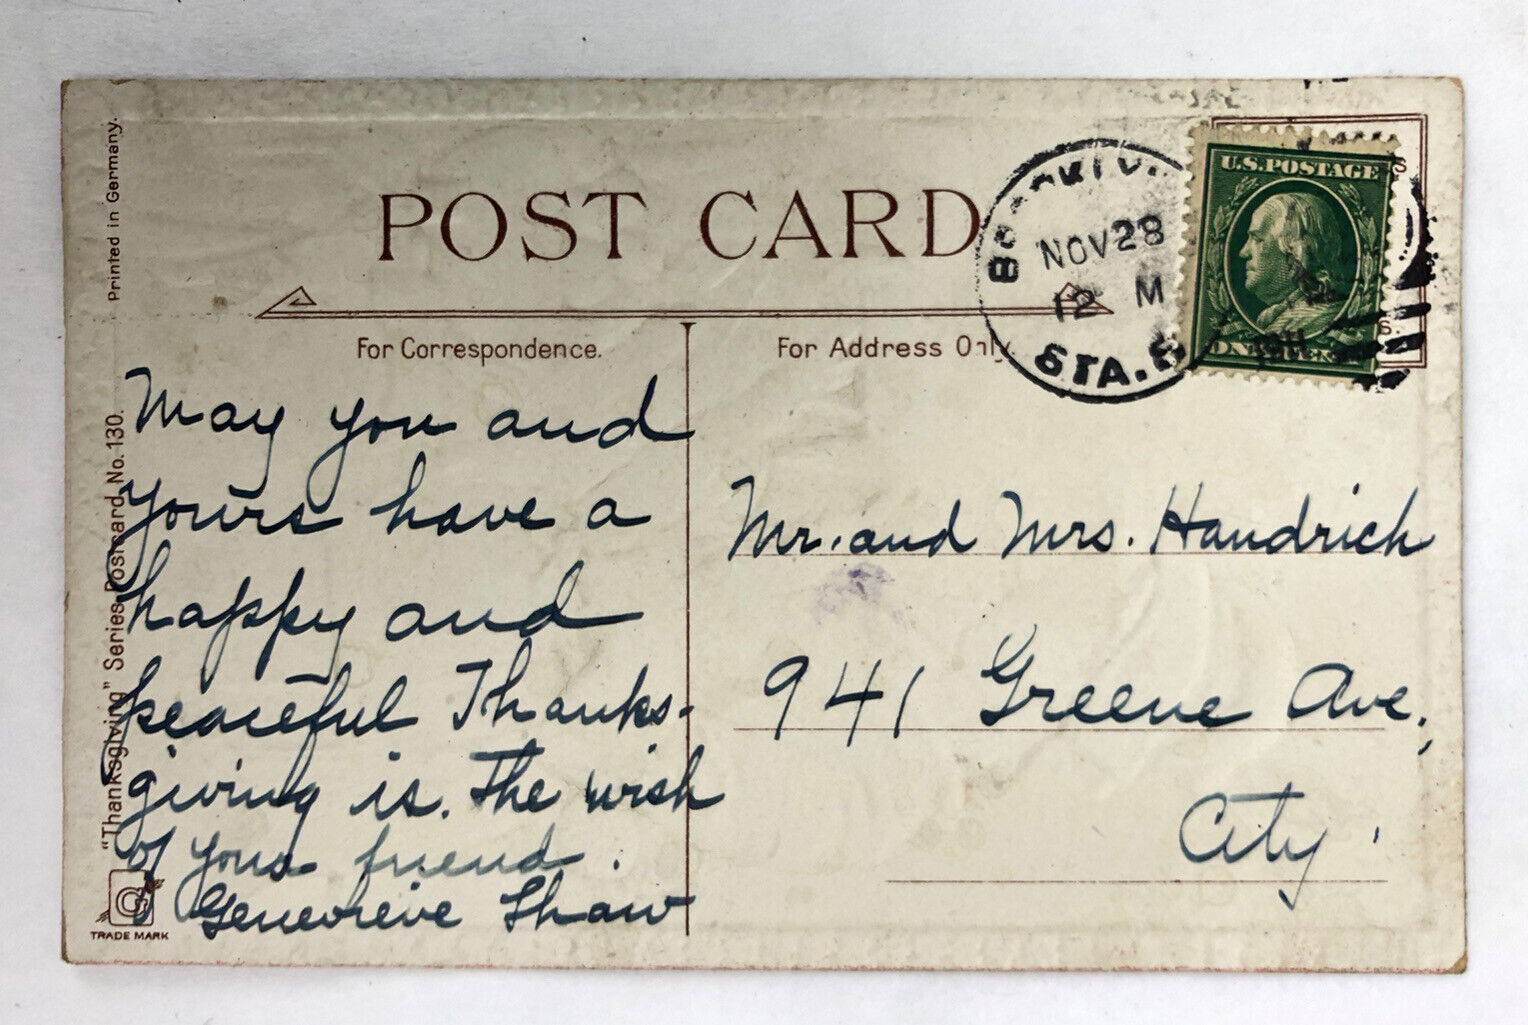 POST CARD
For Correspondence.
For Address Only.
Printed in Germany.
"Thanksgiving" Series Postcard No. 130.
TRADE MARK
NOV 28
12 M
STA.
U.S. POSTAGE
May you and
yours have a
happy and
peaceful Thanks-
giving is. The wish
of your friend.
Genevieve Shaw
Mr. and Mrs. Handrich
941 Greene Ave.,
City.